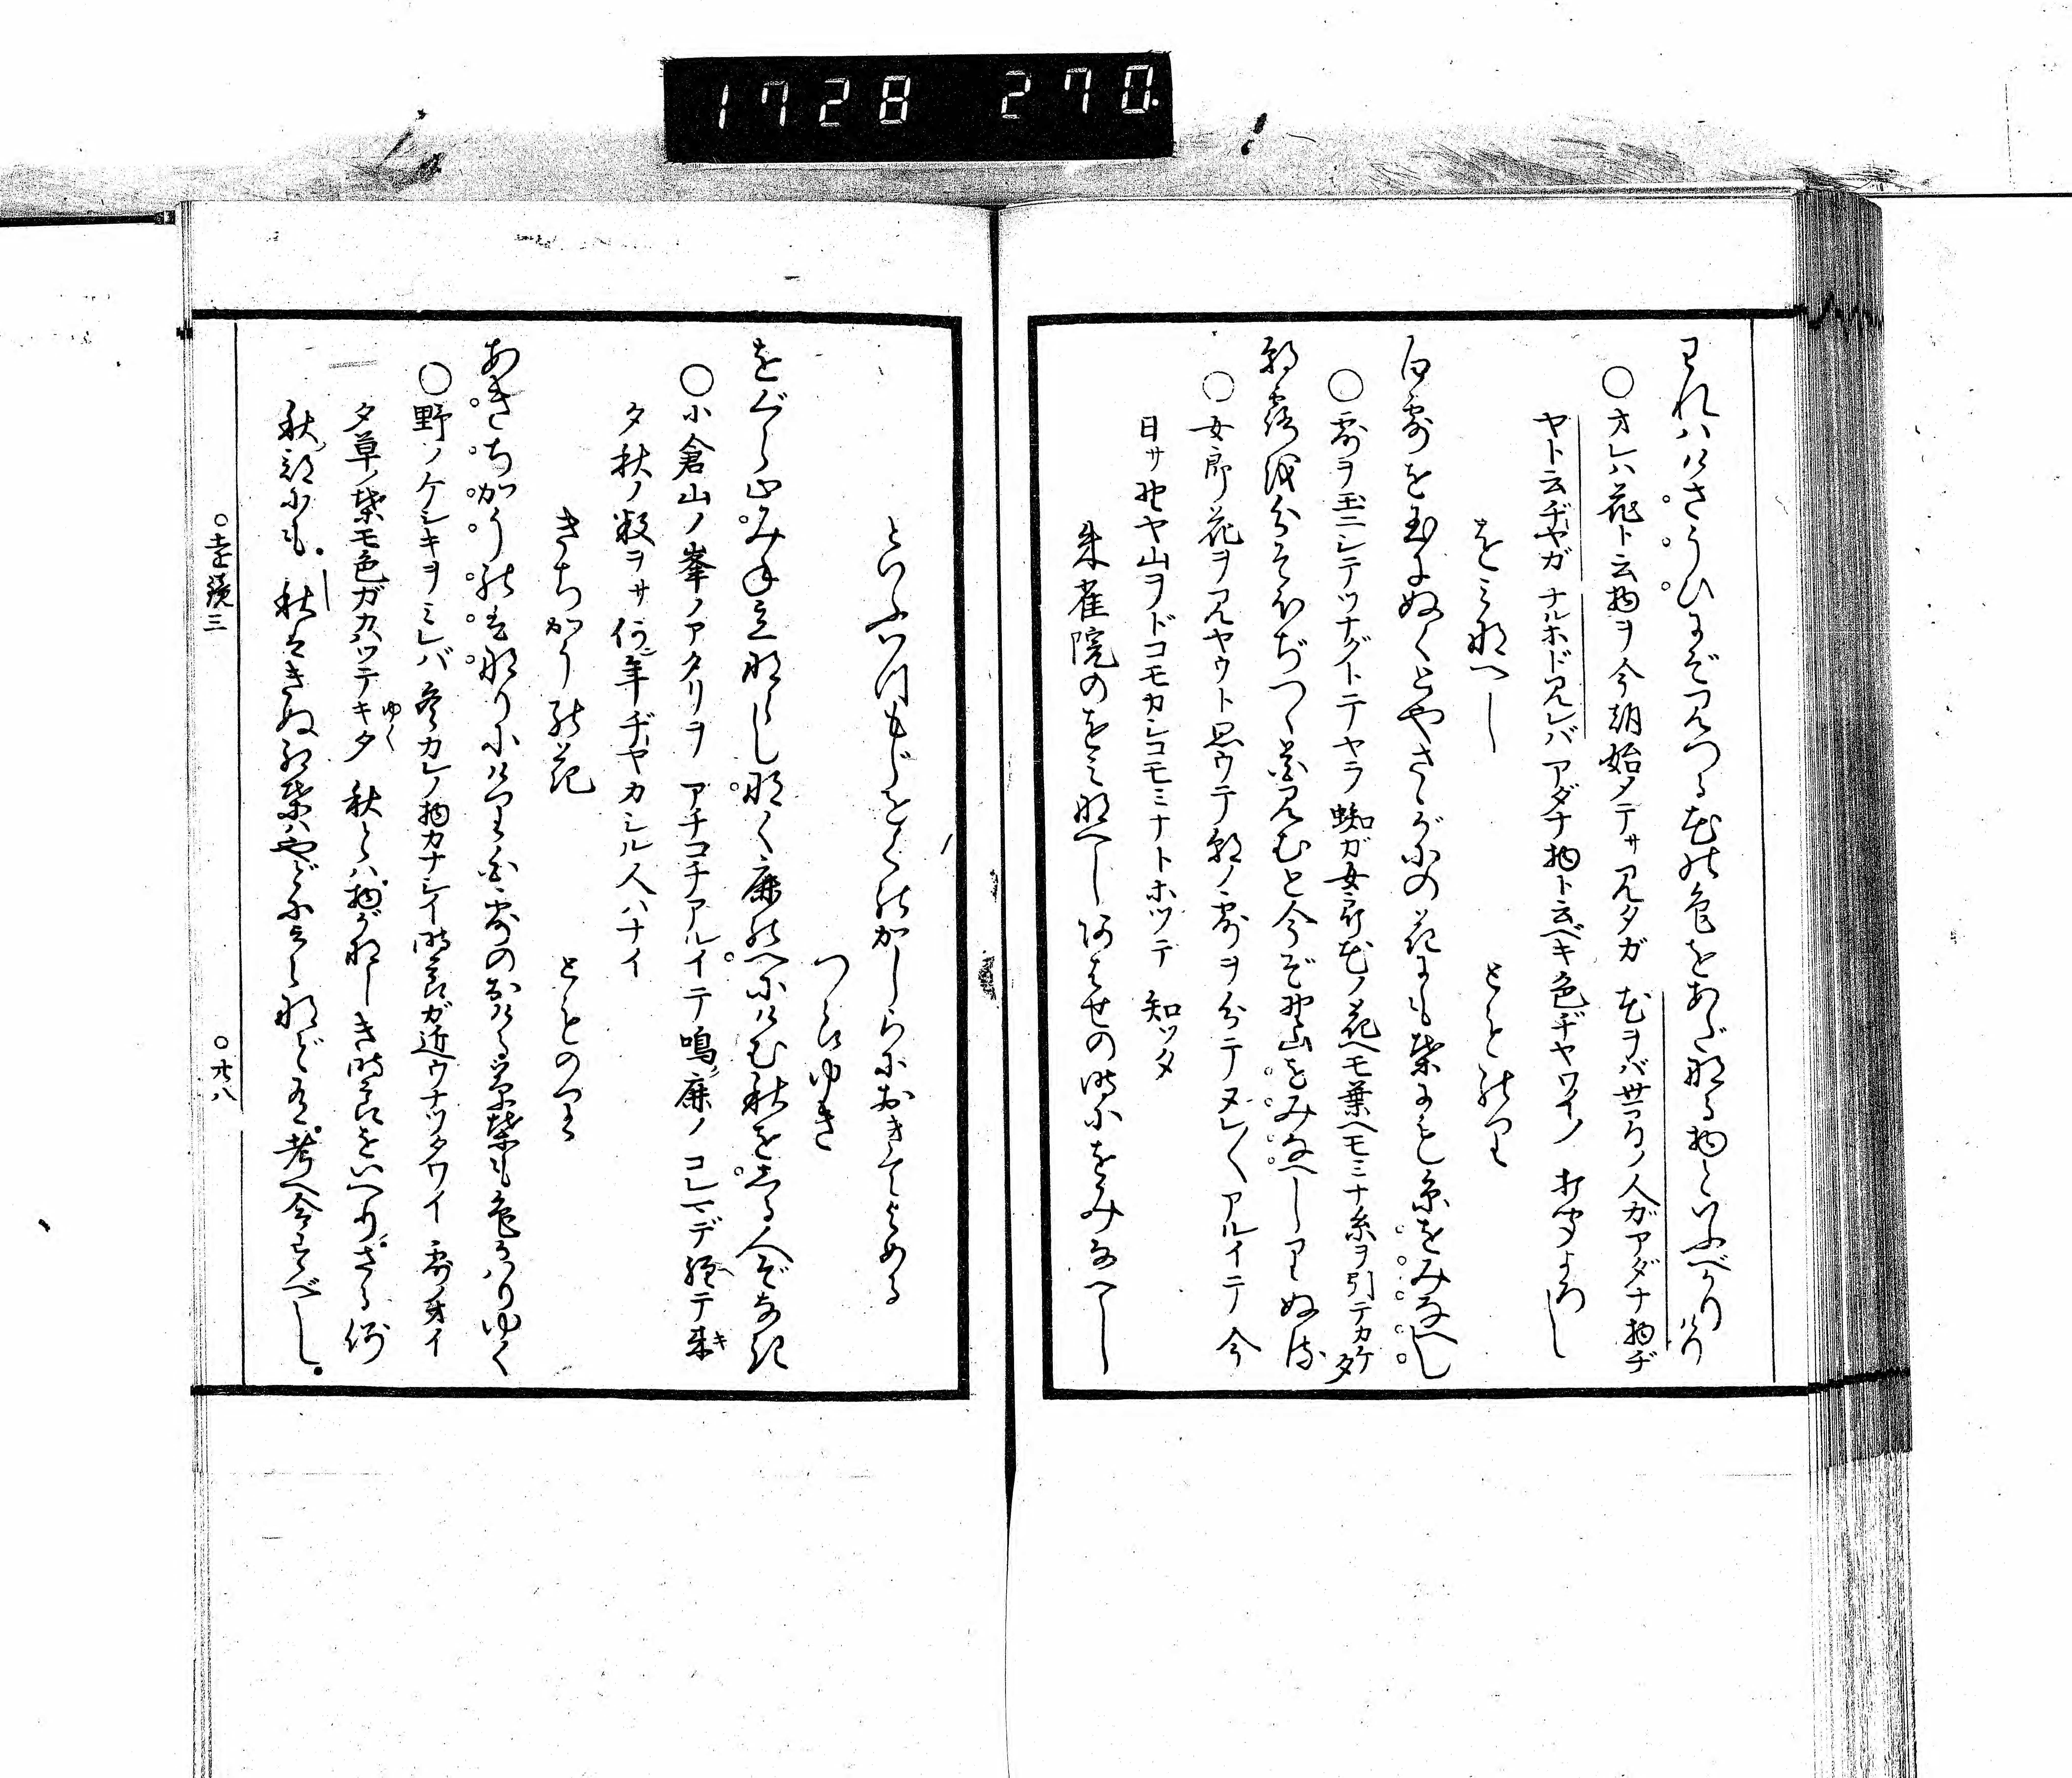 1728 270
われハけさうひにぞ見つる花の色をあだなる物といふべかりけり
○オレハ花ト云物ヲ今朝始メテサ見タガ 花ヲバ世間ノ人ガアダナ物ヂ
ヤト云ヂヤガ ナルホド見レバ アダナ物ト云ベキ色ヂヤワイノ 打聞よろし
をミなへし
とものり
白露を玉にぬくとやさゝがにの花にも葉にも糸をみなへし
○露ヲ玉ニシテツナグトテヤラ 蜘ガ女郎花ノ花ヘモ葉ヘモミナ糸ヲ引テカケタ
朝露を分そほぢつゝ花見むと今ぞ野山をみなへしりぬる
○女郎花ヲ見ヤウト思ウテ朝ノ露ヲ分テヌレ〱アルイテ 今
日サ野ヤ山ヲドコモカシコモミナトホツテ 知ツタ
朱雀院のをミなへしあはせの時にをみなへし
といふいつもじをくのかしらにおきてよめる
つらゆき
をぐら山みね立ならしなく鹿のへにけむ秋をしる人ぞなき
○小倉山ノ峯ノアタリヲ アチコチアルイテ鳴鹿ノ コレマデ経テ来キ
タ秋ノ数ヲサ 何年ヂヤカシル人ハナイ
きちかうの花
とものり
あきちかう野ハなりにけり白露のおける草葉も色かはりゆく
○野ノケシキヲミレバ 冬カレノ物カナシイ時節ガ近ウナツタワイ 露ノオイ
タ草ノ葉モ色ガカハツテキタゆく 秋とハ物がなしき時節をいへり さる例
秋部にも 秋はきぬ紅葉ハやどにふりしく など有 考へ合すべし
○遠鏡三
○廿八